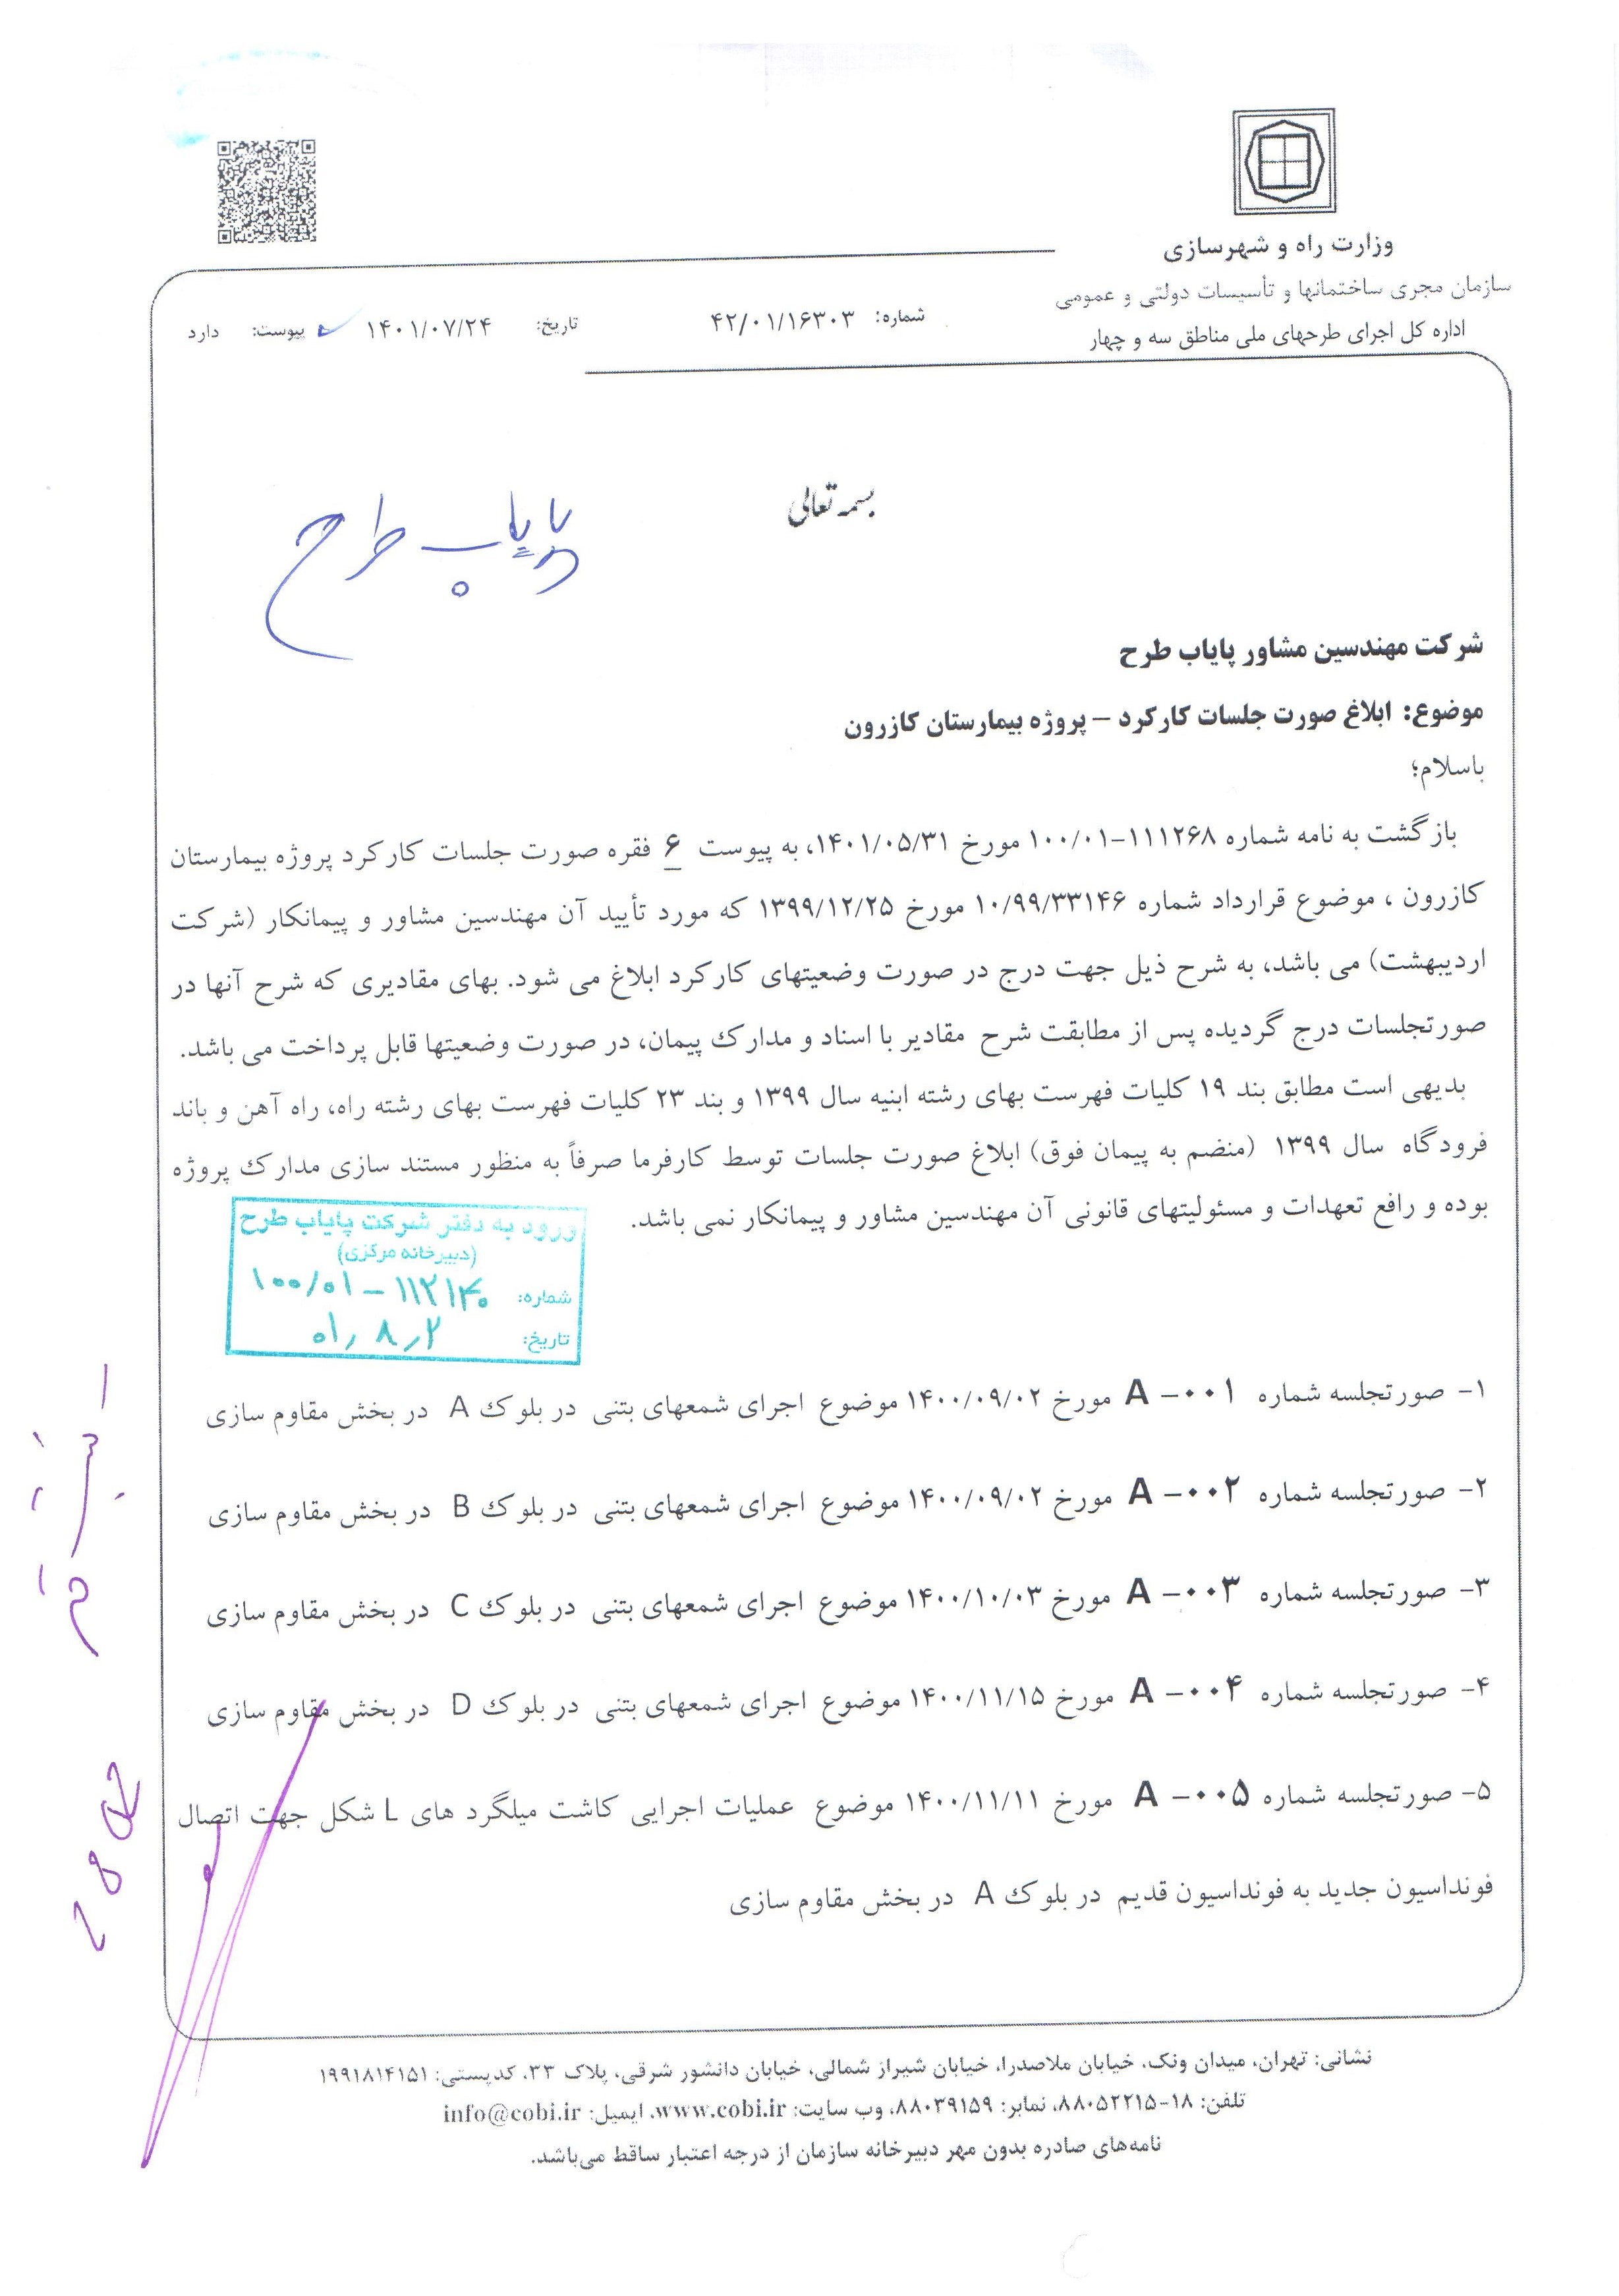 وزارت راه و شهرسازی
سازمان مجری ساختمانها و تأسیسات دولتی و عمومی
اداره کل اجرای طرحهای ملی مناطق سه و چهار
شماره: ۴۲/۰۱/۱۶۳۰۳ تاریخ: ۱۴۰۱/۰۷/۲۴ پیوست: دارد
بسمه تعالی
پایاب طرح
شرکت مهندسین مشاور پایاب طرح
موضوع: ابلاغ صورت جلسات کارکرد – پروژه بیمارستان کازرون
باسلام؛
بازگشت به نامه شماره ۱۱۱۲۶۸-۱۰۰/۰۱ مورخ ۱۴۰۱/۰۵/۳۱، به پیوست ۶ فقره صورت جلسات کارکرد پروژه بیمارستان
کازرون ، موضوع قرارداد شماره ۱۰/۹۹/۳۳۱۴۶ مورخ ۱۳۹۹/۱۲/۲۵ که مورد تأیید آن مهندسین مشاور و پیمانکار (شرکت
اردیبهشت) می باشد، به شرح ذیل جهت درج در صورت وضعیتهای کارکرد ابلاغ می شود. بهای مقادیری که شرح آنها در
صورتجلسات درج گردیده پس از مطابقت شرح مقادیر با اسناد و مدارک پیمان، در صورت وضعیتها قابل پرداخت می باشد.
بدیهی است مطابق بند ۱۹ کلیات فهرست بهای رشته ابنیه سال ۱۳۹۹ و بند ۲۳ کلیات فهرست بهای رشته راه، راه آهن و باند
فرودگاه سال ۱۳۹۹ (منضم به پیمان فوق) ابلاغ صورت جلسات توسط کارفرما صرفاً به منظور مستند سازی مدارک پروژه
بوده و رافع تعهدات و مسئولیتهای قانونی آن مهندسین مشاور و پیمانکار نمی باشد.
ورود به دفتر شرکت پایاب طرح
(دبیرخانه مرکزی)
شماره: ۱۰۰/۰۱ – ۱۱۲۱۴۰
تاریخ: ۰۱٫۸٫۲
۱- صورتجلسه شماره A -۰۰۱ مورخ ۱۴۰۰/۰۹/۰۲ موضوع اجرای شمعهای بتنی در بلوک A در بخش مقاوم سازی
۲- صورتجلسه شماره A -۰۰۲ مورخ ۱۴۰۰/۰۹/۰۲ موضوع اجرای شمعهای بتنی در بلوک B در بخش مقاوم سازی
۳- صورتجلسه شماره A -۰۰۳ مورخ ۱۴۰۰/۱۰/۰۳ موضوع اجرای شمعهای بتنی در بلوک C در بخش مقاوم سازی
۴- صورتجلسه شماره A -۰۰۴ مورخ ۱۴۰۰/۱۱/۱۵ موضوع اجرای شمعهای بتنی در بلوک D در بخش مقاوم سازی
۵- صورتجلسه شماره A -۰۰۵ مورخ ۱۴۰۰/۱۱/۱۱ موضوع عملیات اجرایی کاشت میلگرد های L شکل جهت اتصال
فونداسیون جدید به فونداسیون قدیم در بلوک A در بخش مقاوم سازی
نشانی: تهران، میدان ونک، خیابان ملاصدرا، خیابان شیراز شمالی، خیابان دانشور شرقی، پلاک ۳۳، کدپستی: ۱۹۹۱۸۱۴۱۵۱
تلفن: ۱۸-۸۸۰۵۲۲۱۵، نمابر: ۸۸۰۳۹۱۵۹، وب سایت: www.cobi.ir، ایمیل: info@cobi.ir
نامه‌های صادره بدون مهر دبیرخانه سازمان از درجه اعتبار ساقط می‌باشد.